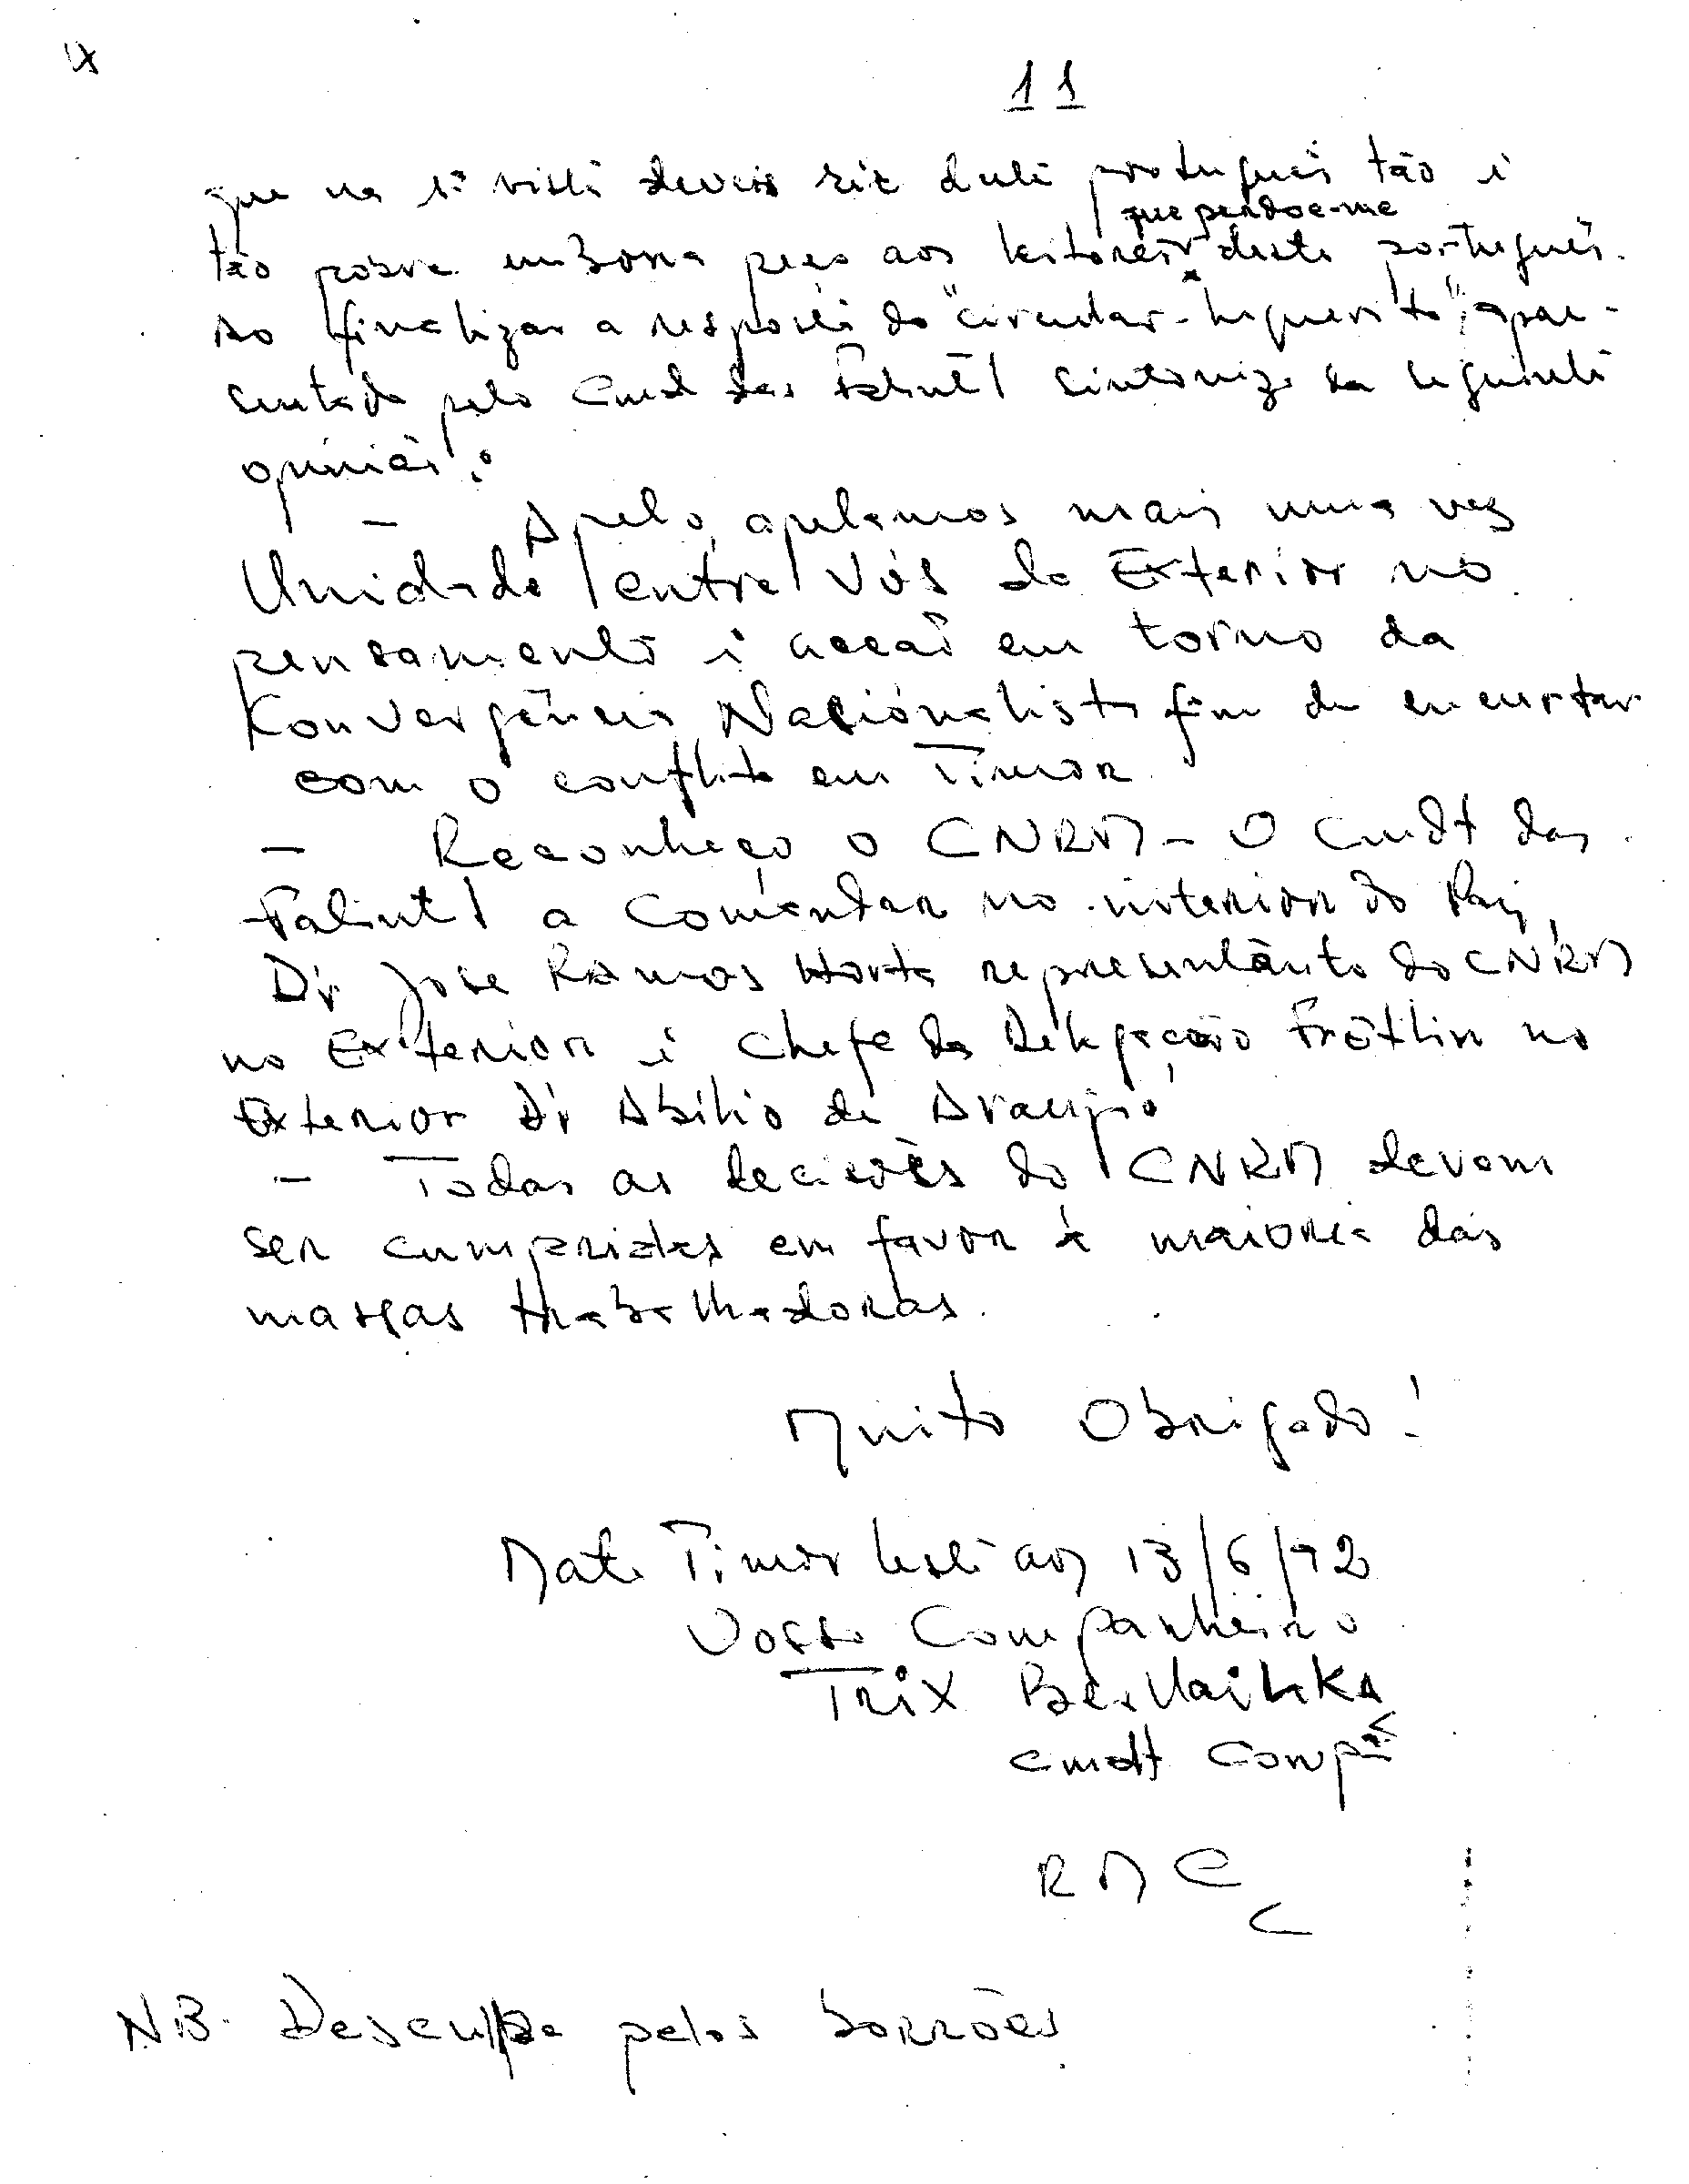 IX
11
que na 1ª vista deveis rir dute português tão i
que perdoe-me
tão pobre embora peço aos leitores deste português.
Ao finalizar a resposta do "circular-Inquerito", apre-
sentado pelo Cmdt das Falintil sintonizo da seguinte
opinião:
- Apelo, apelamos mais uma vez
Unidade entre Vós do Exterior no
pensamento i acção em torno da
Konvergência Nacionalista fim de encurtar
com o conflito em Timor
- Reconheço o CNRM - O Cmdt das
Falintil a Comandar no interior do Pais,
Dr Jose Ramos Horta representante do CNRM
no Exterior i Chefe da Delegação Fretilin no
Exterior Dr Abilio de Araujo
- Todas as decisões do CNRM devem
ser cumpridas em favor à maioria das
massas trabalhadoras.
Muito Obrigado!
Mate Timor Leste aos 13/6/92
Vosso Companheiro
Trix
Cmdt Compª
RMC
NB. Desculpe pelos borrões